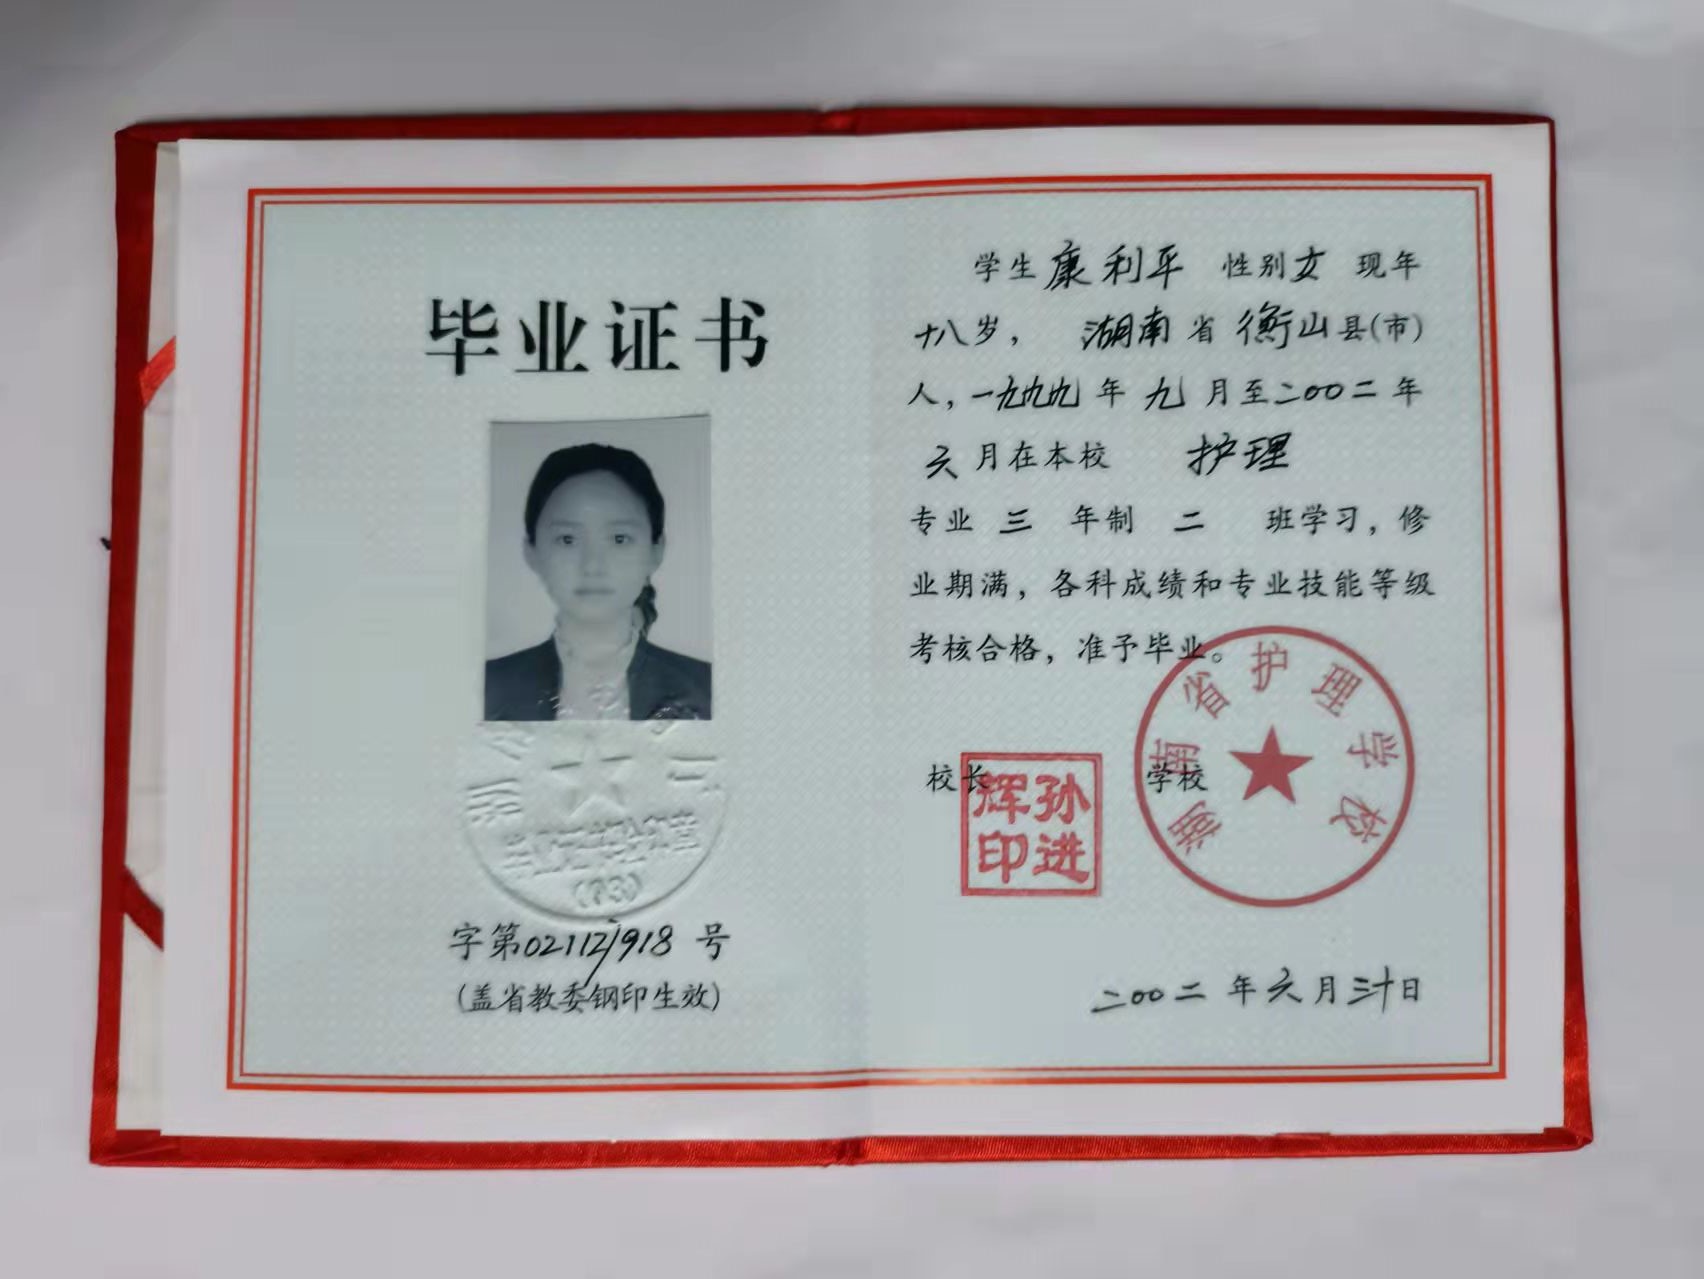 毕业证书
毕业证书验印章
(93)
字第02112918号
(盖省教委钢印生效)
学生康利平 性别女 现年
十八岁， 湖南省衡山县(市)
人，一九九九年九月至二〇〇二年
六月在本校 护理
专业 三 年制 二 班学习，修
业期满，各科成绩和专业技能等级
考核合格，准予毕业。
湖南省护理学校
校长 学校
孙进辉印
二〇〇二年六月三十日